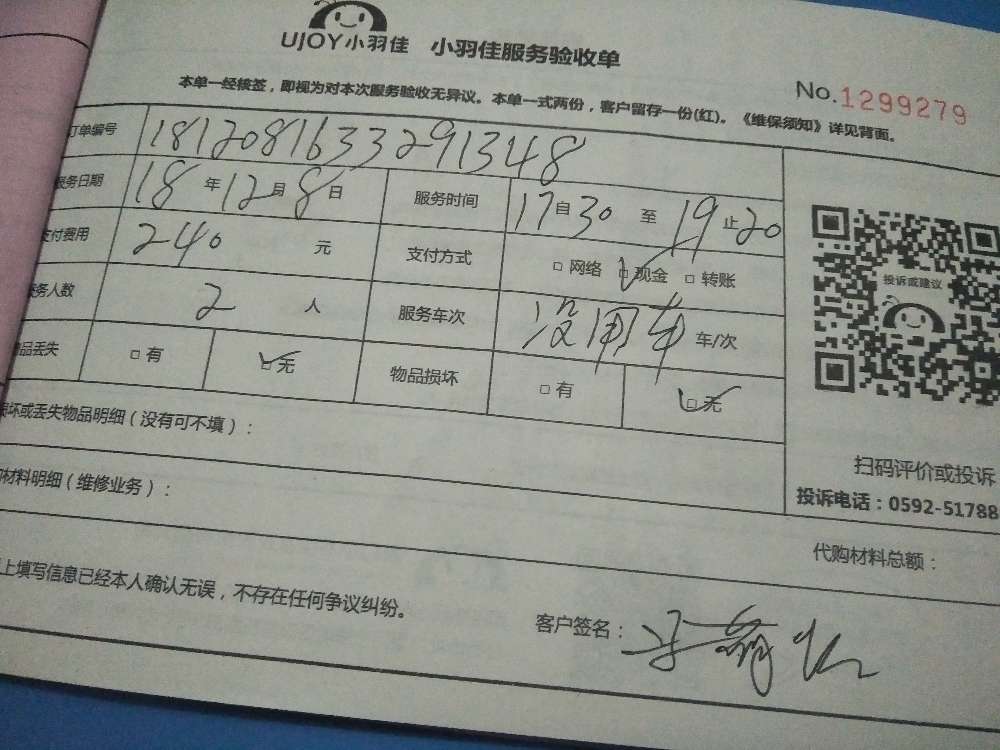 UJOY小羽佳 小羽佳服务验收单
No.1299279
本单一经核签，即视为对本次服务验收无异议。本单一式两份，客户留存一份(红)。《维保须知》详见背面。
订单编号 1812081633291348
服务日期 18 年 12 月 8 日 服务时间 17 自 30 至 19 止 20
支付费用 240 元 支付方式 □ 网络 □ 现金 □ 转账
服务人数 2 人 服务车次 没用车 车/次
物品丢失 □ 有 □ 无 物品损坏 □ 有 □ 无
投诉或建议
损坏或丢失物品明细（没有可不填）：
扫码评价或投诉
材料明细（维修业务）：
投诉电话：0592-51788
代购材料总额：
上填写信息已经本人确认无误，不存在任何争议纠纷。
客户签名：